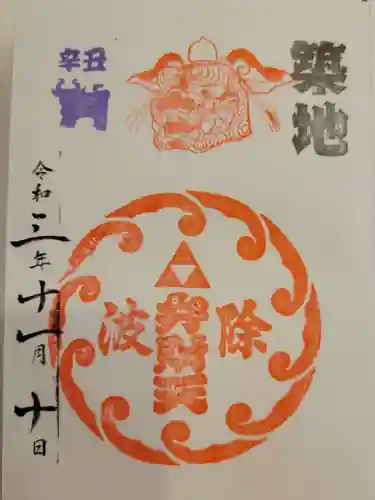 築地
辛丑
除波
弁財天
令和三年十一月十日